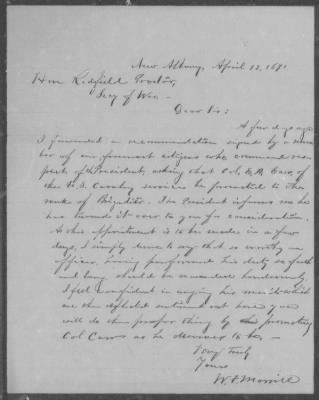 New Albany, April 12, 1891
Hon Redfield Proctor,
Secy of War —
Dear Sir:
A few days ago
I forwarded a recommendation signed by a number
of our foremost citizens who command respect
of the President, asking that Col. E. A. Carr of
the U.S. Cavalry service be promoted to the
rank of Brigadier. The President informs me he
has turned it over to you for consideration.
As this appointment is to be made in a few
days, I simply write to say that so worthy an
officer, having performed his duty so faith
and long should be rewarded handsomely
I feel confident in urging his merits which
are the sentiment out here you
will do the proper thing by promoting
Col Carr as he deserves to be, —
Very truly
Yours